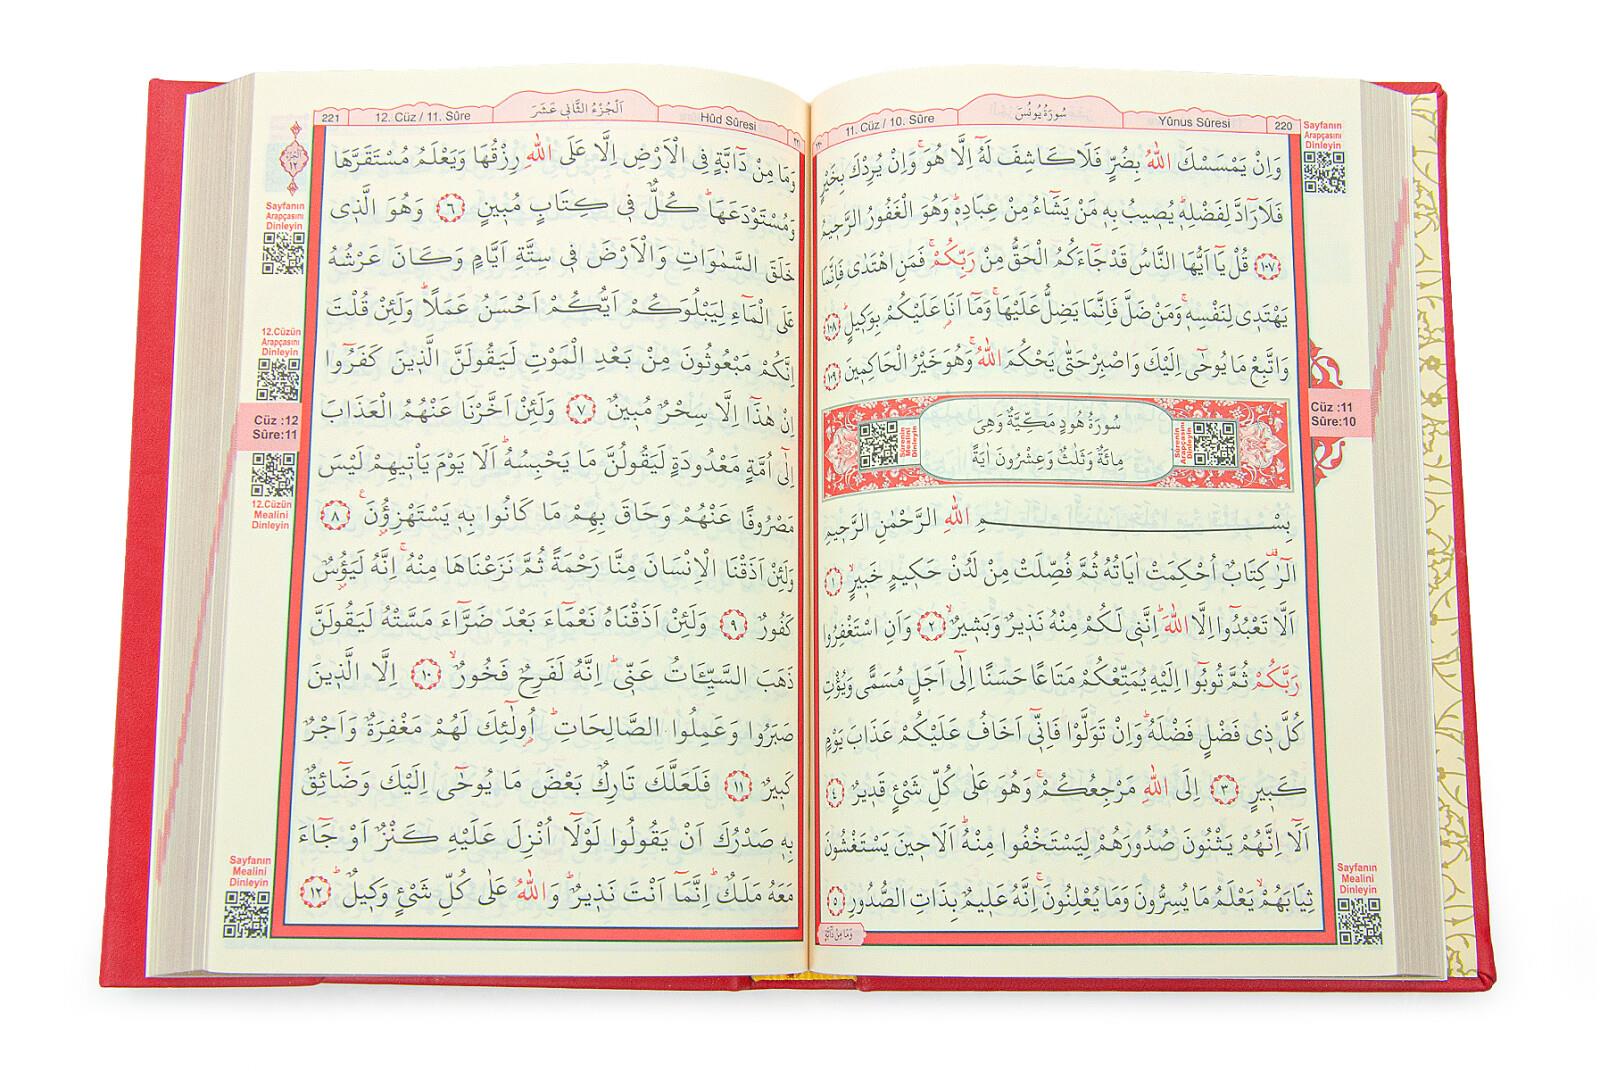 Yûnus Sûresi
220
سُورَةُ يُونُسَ
11. Cüz / 10. Sûre
Sayfanın
Arapçasını
Dinleyin
وَاِنْ يَمْسَسْكَ اللّٰهُ بِضُرٍّ فَلَا كَاشِفَ لَهُٓ اِلَّا هُوَۚ وَاِنْ يُرِدْكَ بِخَيْرٍ
فَلَا رَٓادَّ لِفَضْلِه۪ۜ يُص۪يبُ بِه۪ مَنْ يَشَٓاءُ مِنْ عِبَادِه۪ۜ وَهُوَ الْغَفُورُ الرَّح۪يمُ
﴿١٠٧﴾ قُلْ يَٓا اَيُّهَا النَّاسُ قَدْ جَٓاءَكُمُ الْحَقُّ مِنْ رَبِّكُمْۚ فَمَنِ اهْتَدٰى فَاِنَّمَا
يَهْتَد۪ي لِنَفْسِه۪ۚ وَمَنْ ضَلَّ فَاِنَّمَا يَضِلُّ عَلَيْهَاۚ وَمَٓا اَنَا۬ عَلَيْكُمْ بِوَك۪يلٍۜ ﴿١٠٨﴾
وَاتَّبِعْ مَا يُوحٰٓى اِلَيْكَ وَاصْبِرْ حَتّٰى يَحْكُمَ اللّٰهُۚ وَهُوَ خَيْرُ الْحَاكِم۪ينَ ﴿١٠٩﴾
Cüz :11
Sûre:10
سُورَةُ هُودٍ مَكِّيَّةٌ وَهِيَ
مِائَةٌ وَثَلٰثٌ وَعِشْرُونَ اٰيَةً
Sûrenin
Arapçasını
Dinleyin
Sûrenin
Mealini
Dinleyin
بِسْمِ اللّٰهِ الرَّحْمٰنِ الرَّح۪يمِ
الٓرٰ۠ كِتَابٌ اُحْكِمَتْ اٰيَاتُهُ ثُمَّ فُصِّلَتْ مِنْ لَدُنْ حَك۪يمٍ خَب۪يرٍۙ ﴿١﴾
اَلَّا تَعْبُدُٓوا اِلَّا اللّٰهَۜ اِنَّن۪ي لَكُمْ مِنْهُ نَذ۪يرٌ وَبَش۪يرٌۙ ﴿٢﴾ وَاَنِ اسْتَغْفِرُوا
رَبَّكُمْ ثُمَّ تُوبُٓوا اِلَيْهِ يُمَتِّعْكُمْ مَتَاعًا حَسَنًا اِلٰٓى اَجَلٍ مُسَمًّى وَيُؤْتِ
كُلَّ ذ۪ي فَضْلٍ فَضْلَهُۜ وَاِنْ تَوَلَّوْا فَاِنّ۪ٓي اَخَافُ عَلَيْكُمْ عَذَابَ يَوْمٍ
كَب۪يرٍ ﴿٣﴾ اِلَى اللّٰهِ مَرْجِعُكُمْۚ وَهُوَ عَلٰى كُلِّ شَيْءٍ قَد۪يرٌ ﴿٤﴾
اَلَٓا اِنَّهُمْ يَثْنُونَ صُدُورَهُمْ لِيَسْتَخْفُوا مِنْهُۜ اَلَا ح۪ينَ يَسْتَغْشُونَ
ثِيَابَهُمْۙ يَعْلَمُ مَا يُسِرُّونَ وَمَا يُعْلِنُونَۚ اِنَّهُ عَل۪يمٌ بِذَاتِ الصُّدُورِ ﴿٥﴾
Sayfanın
Mealini
Dinleyin
وَمَا مِنْ دَٓابَّةٍ
221
12. Cüz / 11. Sûre
اَلْجُزْءُ الثَّانِي عَشَرَ
Hûd Sûresi
Sayfanın
Arapçasını
Dinleyin
وَمَا مِنْ دَٓابَّةٍ فِي الْاَرْضِ اِلَّا عَلَى اللّٰهِ رِزْقُهَا وَيَعْلَمُ مُسْتَقَرَّهَا
وَمُسْتَوْدَعَهَاۜ كُلٌّ ف۪ي كِتَابٍ مُب۪ينٍ ﴿٦﴾ وَهُوَ الَّذ۪ي
خَلَقَ السَّمٰوَاتِ وَالْاَرْضَ ف۪ي سِتَّةِ اَيَّامٍ وَكَانَ عَرْشُهُ
عَلَى الْمَٓاءِ لِيَبْلُوَكُمْ اَيُّكُمْ اَحْسَنُ عَمَلًاۜ وَلَئِنْ قُلْتَ
اِنَّكُمْ مَبْعُوثُونَ مِنْ بَعْدِ الْمَوْتِ لَيَقُولَنَّ الَّذ۪ينَ كَفَرُٓوا
اِنْ هٰذَٓا اِلَّا سِحْرٌ مُب۪ينٌ ﴿٧﴾ وَلَئِنْ اَخَّرْنَا عَنْهُمُ الْعَذَابَ
اِلٰٓى اُمَّةٍ مَعْدُودَةٍ لَيَقُولُنَّ مَا يَحْبِسُهُۜ اَلَا يَوْمَ يَأْت۪يهِمْ لَيْسَ
مَصْرُوفًا عَنْهُمْ وَحَاقَ بِهِمْ مَا كَانُوا بِه۪ يَسْتَهْزِؤُ۫نَ۟ ﴿٨﴾
وَلَئِنْ اَذَقْنَا الْاِنْسَانَ مِنَّا رَحْمَةً ثُمَّ نَزَعْنَاهَا مِنْهُۚ اِنَّهُ لَيَؤُ۫سٌ
كَفُورٌ ﴿٩﴾ وَلَئِنْ اَذَقْنَاهُ نَعْمَٓاءَ بَعْدَ ضَرَّٓاءَ مَسَّتْهُ لَيَقُولَنَّ
ذَهَبَ السَّيِّـَٔاتُ عَنّ۪يۜ اِنَّهُ لَفَرِحٌ فَخُورٌۙ ﴿١٠﴾ اِلَّا الَّذ۪ينَ
صَبَرُوا وَعَمِلُوا الصَّالِحَاتِۜ اُو۬لٰٓئِكَ لَهُمْ مَغْفِرَةٌ وَاَجْرٌ
كَب۪يرٌ ﴿١١﴾ فَلَعَلَّكَ تَارِكٌ بَعْضَ مَا يُوحٰٓى اِلَيْكَ وَضَٓائِقٌ
بِه۪ صَدْرُكَ اَنْ يَقُولُوا لَوْلَٓا اُنْزِلَ عَلَيْهِ كَنْزٌ اَوْ جَٓاءَ
مَعَهُ مَلَكٌۜ اِنَّمَٓا اَنْتَ نَذ۪يرٌۜ وَاللّٰهُ عَلٰى كُلِّ شَيْءٍ وَك۪يلٌۜ ﴿١٢﴾
12.Cüzün
Arapçasını
Dinleyin
Cüz :12
Sûre:11
12.Cüzün
Mealini
Dinleyin
Sayfanın
Mealini
Dinleyin